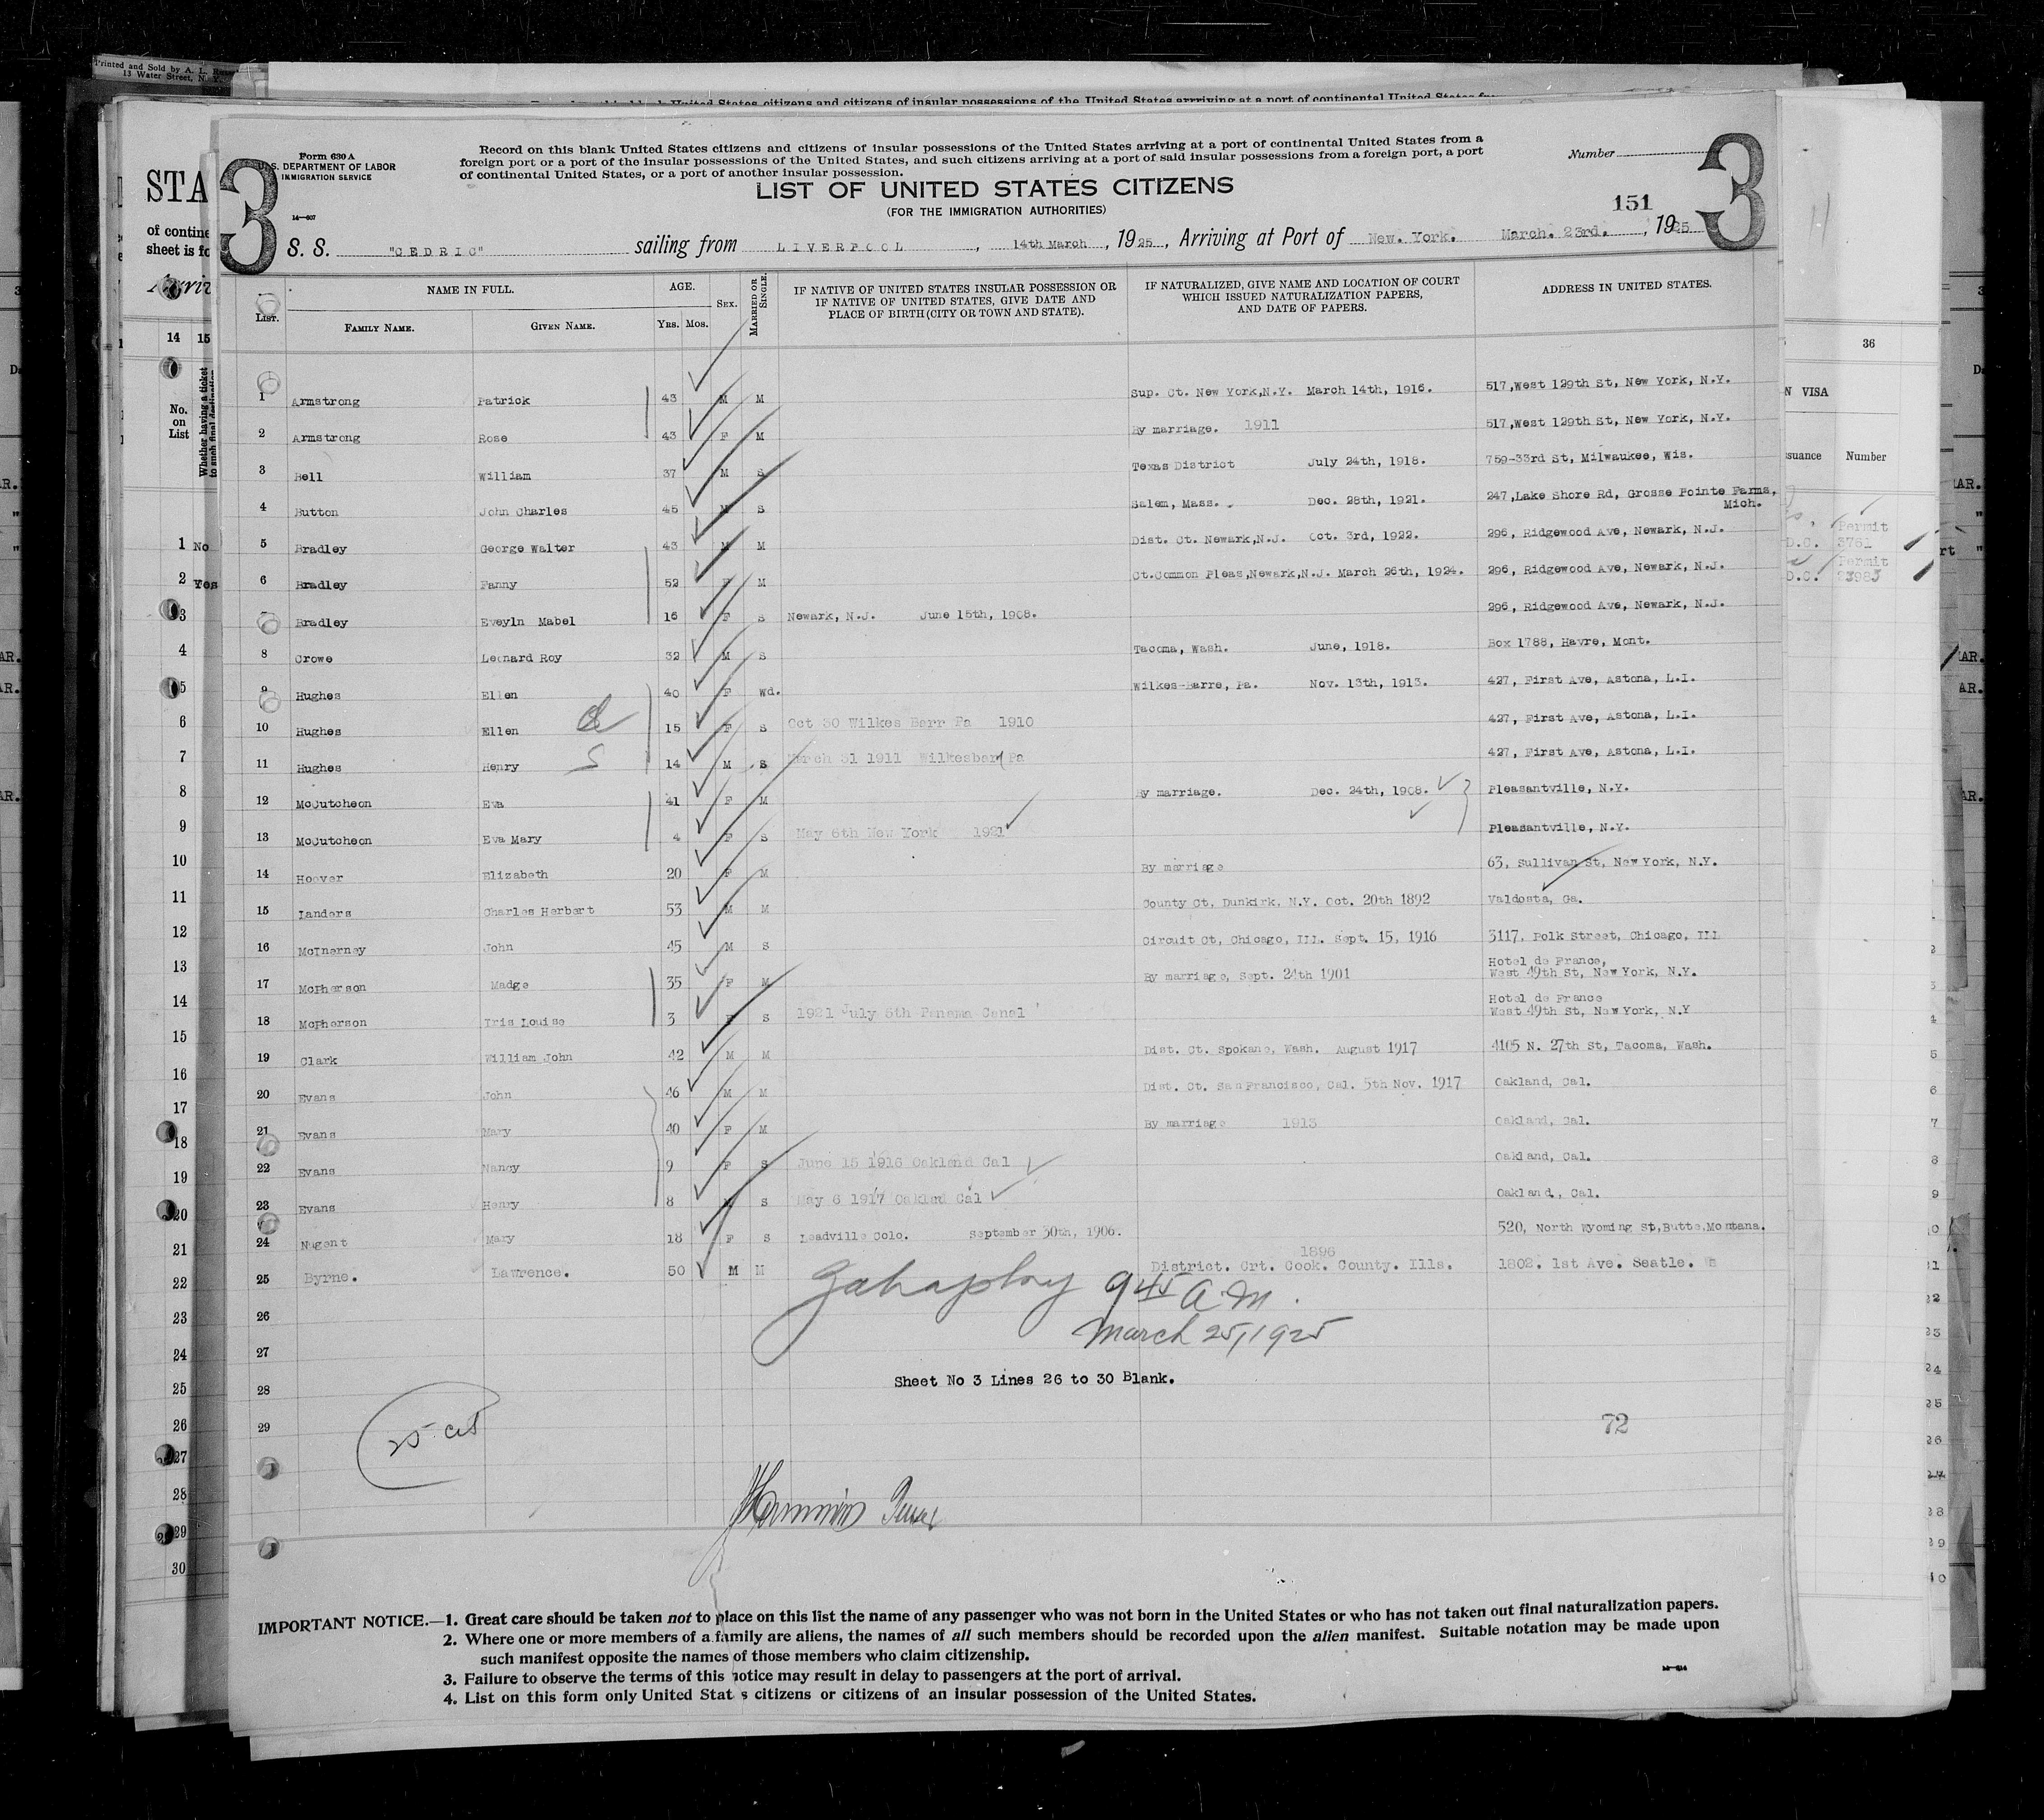 Printed and Sold by A. L.
13 Water Street, N. Y.
Form 630 A
U.S. DEPARTMENT OF LABOR
IMMIGRATION SERVICE
14—607
Record on this blank United States citizens and citizens of insular possessions of the United States arriving at a port of continental United States from a
foreign port or a port of the insular possessions of the United States, and such citizens arriving at a port of said insular possessions from a foreign port, a port
of continental United States, or a port of another insular possession.
Number
3 3
LIST OF UNITED STATES CITIZENS
(FOR THE IMMIGRATION AUTHORITIES)
151
S. S. "CEDRIC" sailing from LIVERPOOL, 14th March, 1925, Arriving at Port of New. York. March. 23rd., 1925
LIST. NAME IN FULL. AGE. SEX. MARRIED OR SINGLE. IF NATIVE OF UNITED STATES INSULAR POSSESSION OR IF NATIVE OF UNITED STATES, GIVE DATE AND PLACE OF BIRTH (CITY OR TOWN AND STATE). IF NATURALIZED, GIVE NAME AND LOCATION OF COURT WHICH ISSUED NATURALIZATION PAPERS, AND DATE OF PAPERS. ADDRESS IN UNITED STATES.
FAMILY NAME. GIVEN NAME. YRS. MOS.
1 Armstrong Patrick 43 M M Sup. Ct. New York,N.Y. March 14th, 1916. 517,West 129th St, New York, N.Y.
2 Armstrong Rose 43 F M By marriage. 1911 517,West 129th St, New York, N.Y.
3 Bell William 37 M S Texas District July 24th, 1918. 759-33rd St, Milwaukee, Wis.
4 Button John Charles 45 M S Salem, Mass. Dec. 28th, 1921. 247,Lake Shore Rd, Grosse Pointe Farms, Mich.
5 Bradley George Walter 43 M M Dist. Ct. Newark,N.J. Oct. 3rd, 1922. 296, Ridgewood Ave, Newark, N.J.
6 Bradley Fanny 52 F M Ct.Common Pleas,Newark,N.J. March 26th, 1924. 296, Ridgewood Ave, Newark, N.J.
7 Bradley Eveyln Mabel 16 F S Newark, N.J. June 15th, 1908. 296, Ridgewood Ave, Newark, N.J.
8 Crowe Leonard Roy 32 M S Tacoma, Wash. June, 1918. Box 1788, Havre, Mont.
9 Hughes Ellen 40 F Wd. Wilkes-Barre, Pa. Nov. 13th, 1913. 427, First Ave, Astona, L.I.
10 Hughes Ellen d 15 F S Oct 30 Wilkes Barr Pa 1910 427, First Ave, Astona, L.I.
11 Hughes Henry S 14 M S March 31 1911 Wilkesbar Pa 427, First Ave, Astona, L.I.
12 McCutcheon Eva 41 F M By marriage. Dec. 24th, 1908. Pleasantville, N.Y.
13 McCutcheon Eva Mary 4 F S May 6th New York 1921 Pleasantville, N.Y.
14 Hoover Elizabeth 20 F M By marriage 63, Sullivan St, New York, N.Y.
15 Landers Charles Herbert 53 M M County Ct, Dunkirk, N.Y. Oct. 20th 1892 Valdosta, Ga.
16 McInerney John 45 M S Circuit Ct, Chicago, Ill. Sept. 15, 1916 3117, Polk Street, Chicago, Ill
17 McPherson Madge 35 F M By marriage, Sept. 24th 1901 Hotel de France, West 49th St, New York, N.Y.
18 McPherson Iris Louise 3 F S 1921 July 5th Panama Canal Hotel de France West 49th St, New York, N.Y
19 Clark William John 42 M M Dist. Ct. Spokane, Wash. August 1917 4105 N. 27th St, Tacoma, Wash.
20 Evans John 46 M M Dist. Ct. San Francisco, Cal. 5th Nov. 1917 Oakland, Cal.
21 Evans Mary 40 F M By marriage 1913 Oakland, Cal.
22 Evans Nancy 9 F S June 15 1916 Oakland Cal Oakland, Cal.
23 Evans Henry 8 M S May 6 1917 Oaklad Cal Oakland, Cal.
24 Nugent Mary 18 F S Leadville Colo. September 30th, 1906. 520, North Wyoming St,Butte,Montana.
25 Byrne. Lawrence. 50 M M District. Crt. Cook. County. Ills. 1896 1802. 1st Ave. Seatle. Wa
26 9 45 A.M.
27 March 25, 1925
28 Sheet No 3 Lines 26 to 30 Blank.
29 72
25 cit
IMPORTANT NOTICE.—1. Great care should be taken not to place on this list the name of any passenger who was not born in the United States or who has not taken out final naturalization papers.
2. Where one or more members of a family are aliens, the names of all such members should be recorded upon the alien manifest. Suitable notation may be made upon
such manifest opposite the names of those members who claim citizenship.
3. Failure to observe the terms of this notice may result in delay to passengers at the port of arrival.
4. List on this form only United States citizens or citizens of an insular possession of the United States.